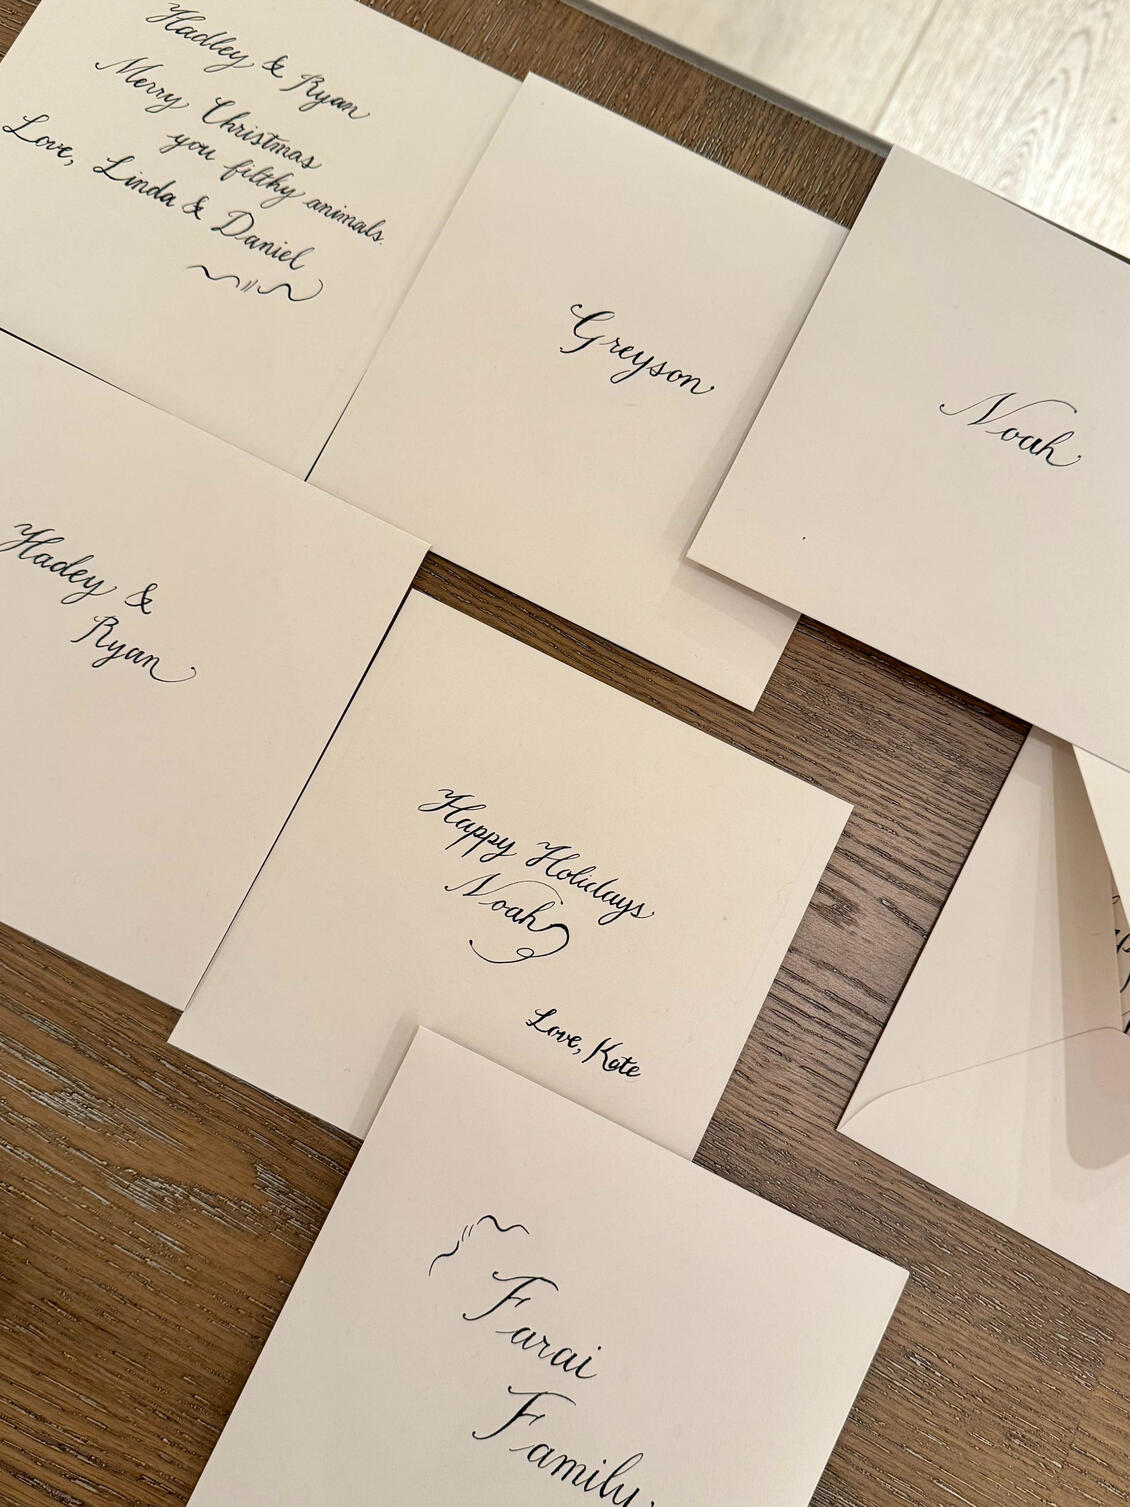 Hadley & Ryan
Merry Christmas
you filthy animals.
Love, Linda & Daniel
Greyson
Noah
Hadey &
Ryan
Happy Holidays
Noah
Love, Kate
Farai
Family